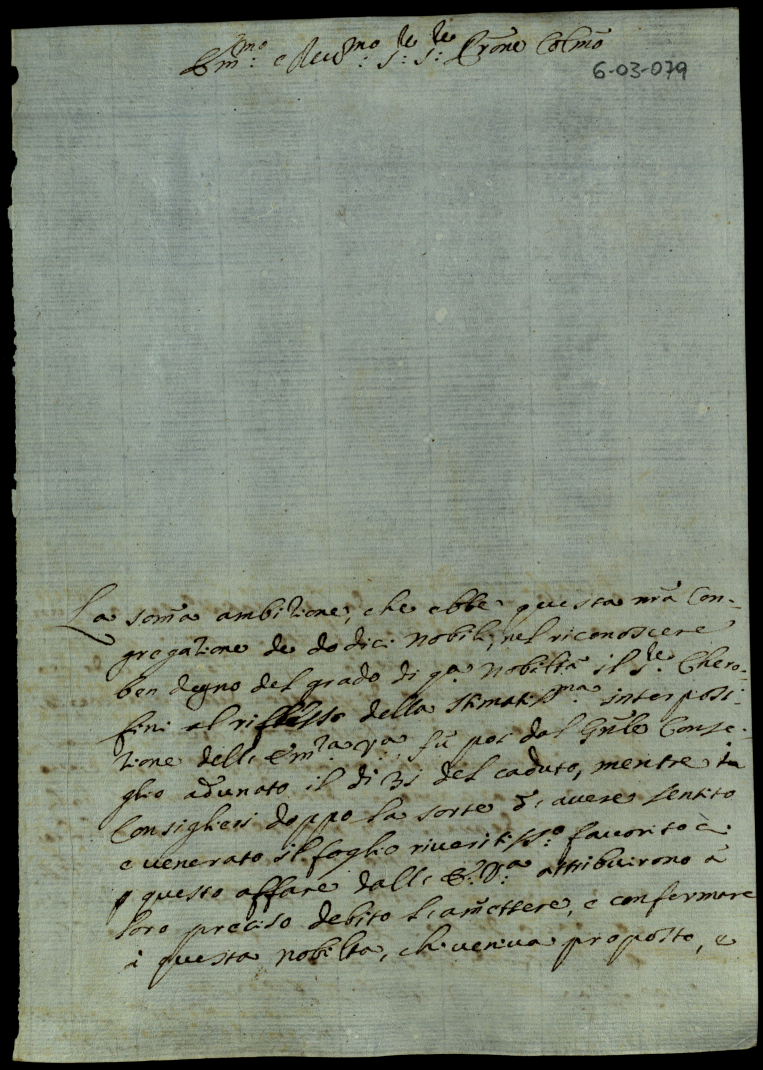 Em:mo e Reu:mo S:re S:re Prōne Colmō
6-03-079
La som̄a ambizione, che ebbe questa nrā Con-
gregazione de dodici Nobili, nel riconoscere
ben degno del grado di q.a Nobiltà il S.re Chero-
fini al riflesso della stimatiss.ma interposi-
zione dell' Em.za V.a fù poi dal Gn̄le Conse-
glio adunato il di 31 del caduto, mentre i
Consiglieri doppo la sorte d' avere sentito
e venerato il foglio riveritiss.o favorito ci
p questo affare dall' E. V.a attribuirono à
loro preciso debito l' am̄ettere, e confermare
à questa nobiltà, chi veniva proposto, e